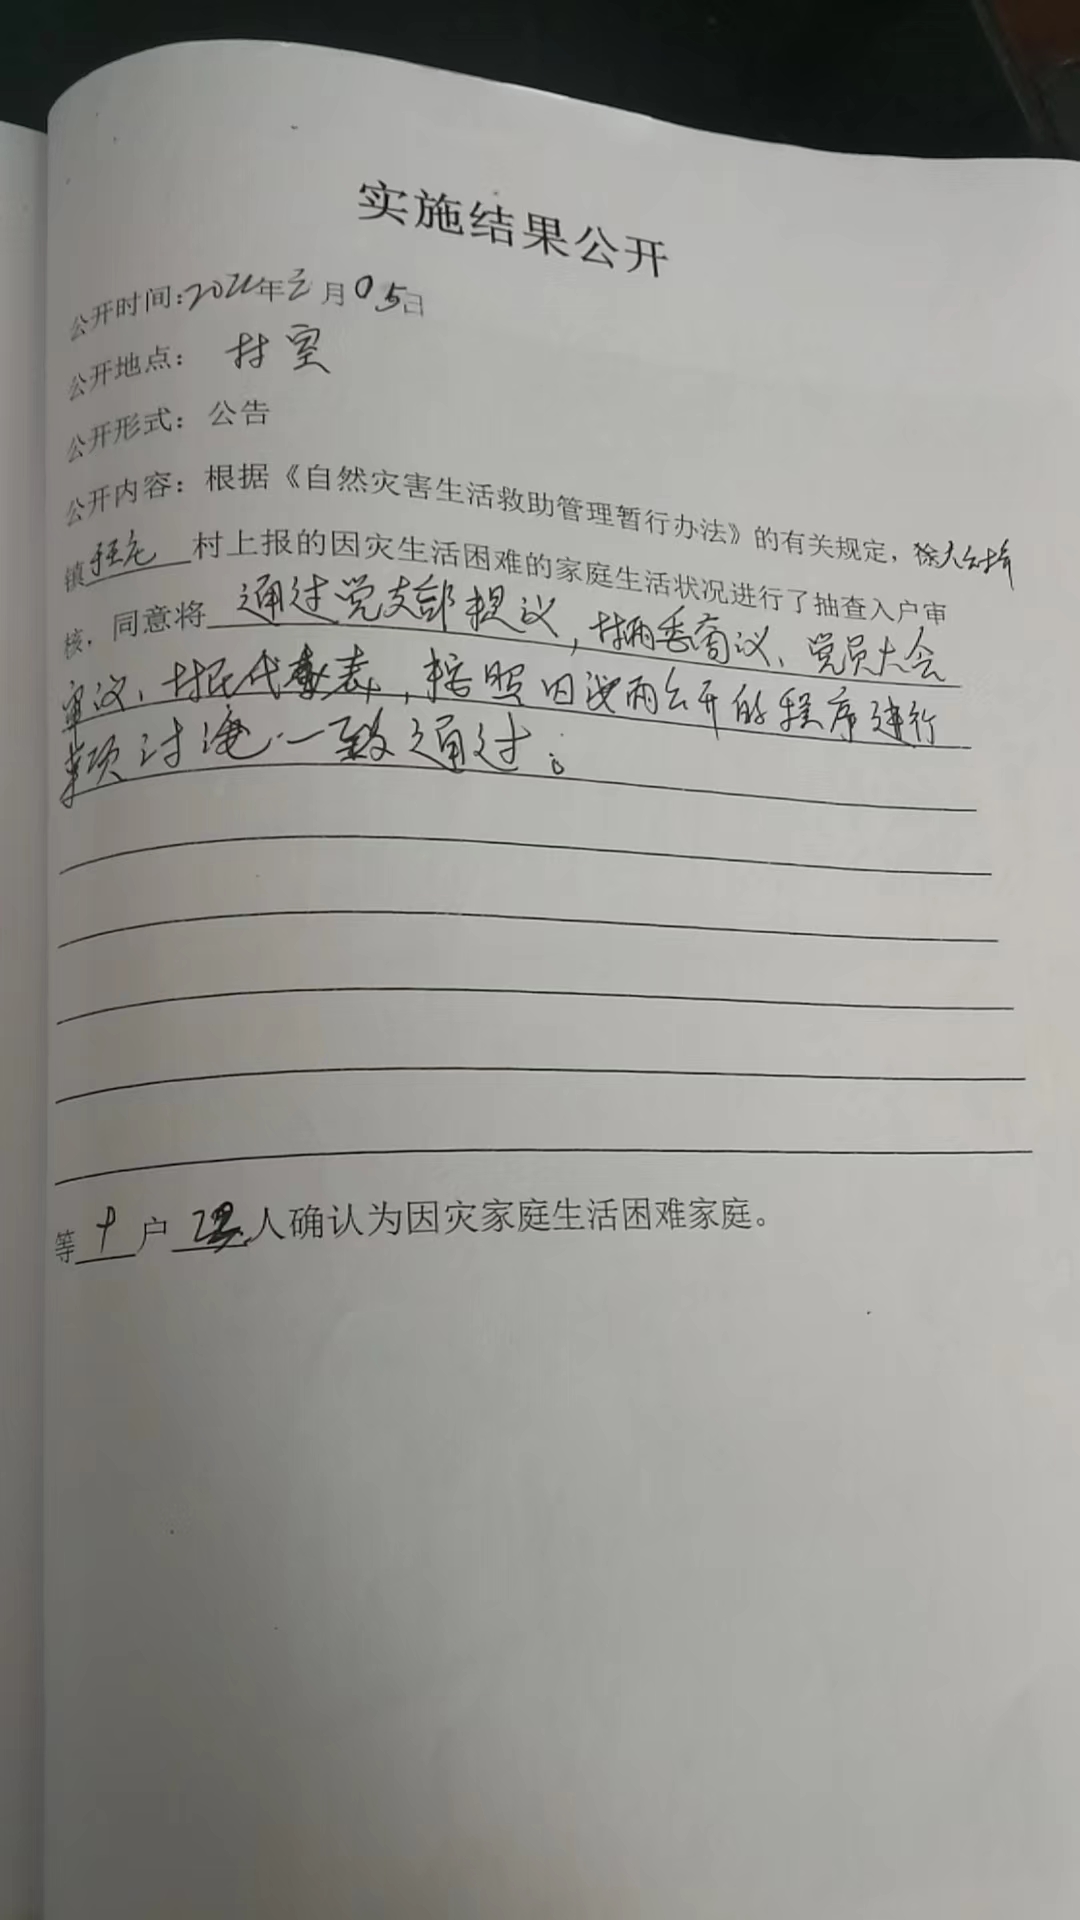 实施结果公开
公开时间:年 月05日
公开地点：村室
公开形式：公告
公开内容：根据《自然灾害生活救助管理暂行办法》的有关规定，
镇 村上报的因灾生活困难的家庭生活状况进行了抽查入户审
核，同意将通过党支部提议，村两委商议、党员大会
审议、村民代表，按照 两公开的程序进行
事项讨 一致通过。
等十户 人确认为因灾家庭生活困难家庭。